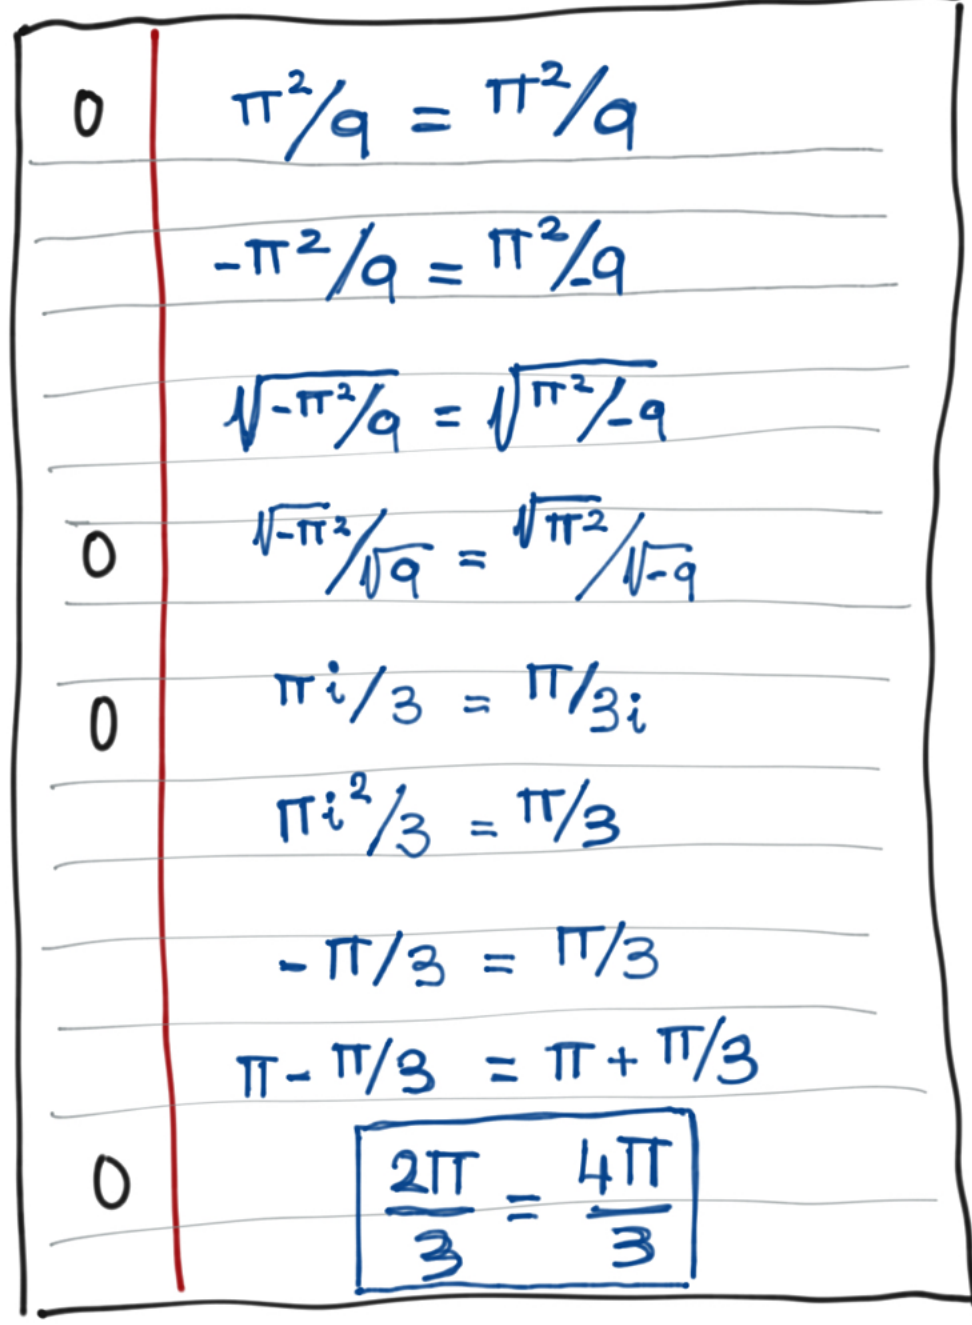 π²/9 = π²/9
-π²/9 = π²/-9
√(-π²/9) = √(π²/-9)
√-π²/√9 = √π²/√-9
πi/3 = π/3i
πi²/3 = π/3
-π/3 = π/3
π - π/3 = π + π/3
2π/3 = 4π/3